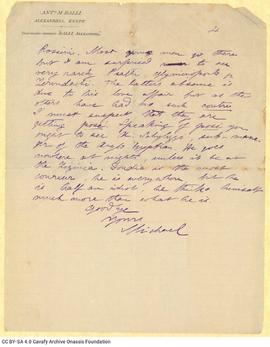 ANT. M. RALLI
ALEXANDRIA, EGYPT
TELEGRAPHIC ADDRESS: RALLI ALEXANDRIA
4
Rossini. Most young men go there
but I am surprised to see
very rarely Psalti
Zervudachi. The latter's absence is
due to his love affair but as the
others have had no such
I must suspect that they are
getting posé. Speaking of posés you
ought to see the sub-mana-
ger of the Anglo Egyptian. He goes
nowhere at nights, unless it be at
the is the most
coureur, he is everywhere but he
is half an idiot, he thinks himself
much more than what he is.
Goodbye
Yours
Michael
CC BY-SA 4.0 Cavafy Archive Onassis Foundation